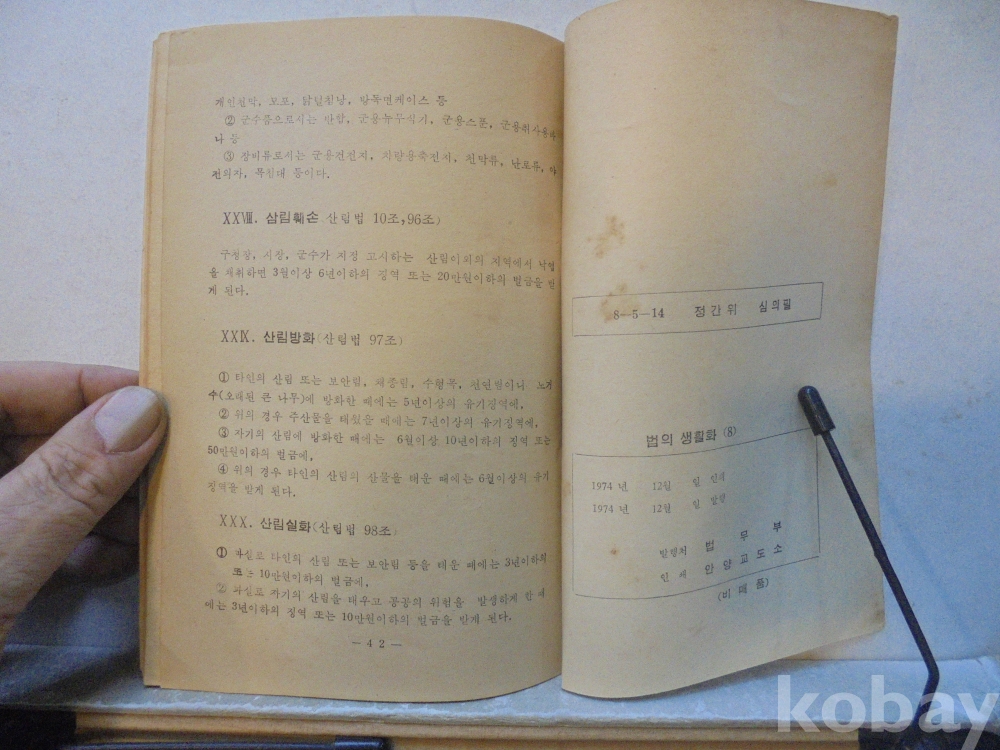 개인천막, 모포, 닭털침낭, 방독면케이스 등
② 군수품으로서는 반합, 군용뉴무식기, 군용스푼, 군용취사용바
나 등
③ 장비류로서는 군용건전지, 차량용축전지, 천막류, 난로류, 야
전의자, 목침대 등이다.
XXⅧ. 삼림훼손 산림법 10조,96조)
구청장, 시장, 군수가 지정 고시하는 산림이외의 지역에서 낙엽
을 채취하면 3월이상 6년이하의 징역 또는 20만원이하의 벌금을 받
게 된다.
XXⅨ. 산림방화(산림법 97조)
① 타인의 산림 또는 보안림, 채종림, 수형목, 천연범이니 노거
수(오래된 큰 나무)에 방화한 때에는 5년이상의 유기징역에,
② 위의 경우 주산물을 태웠을 때에는 7년이상의 유기징역에,
③ 자기의 산림에 방화한 때에는 6월이상 10년이하의 징역 또는
50만원이하의 벌금에,
④ 위의 경우 타인의 산림의 산물을 태운 때에는 6월이상의 유기
징역을 받게 된다.
XXX. 산림실화(산림법 98조)
① 과실로 타인의 산림 또는 보안림 등을 태운 때에는 3년이하의
또는 10만원이하의 벌금에,
② 과실로 자기의 산림을 태우고 공공의 위험을 발생하게 한 때
에는 3년이하의 징역 또는 10만원이하의 벌금을 받게 된다.
— 4 2 —
8—5—14 정간위 심의필
법의 생활화 (8)
1974년 12월 일 인쇄
1974년 12월 일 발행
발행처 법무부
인쇄 안양교도소
(비매품)
kobay